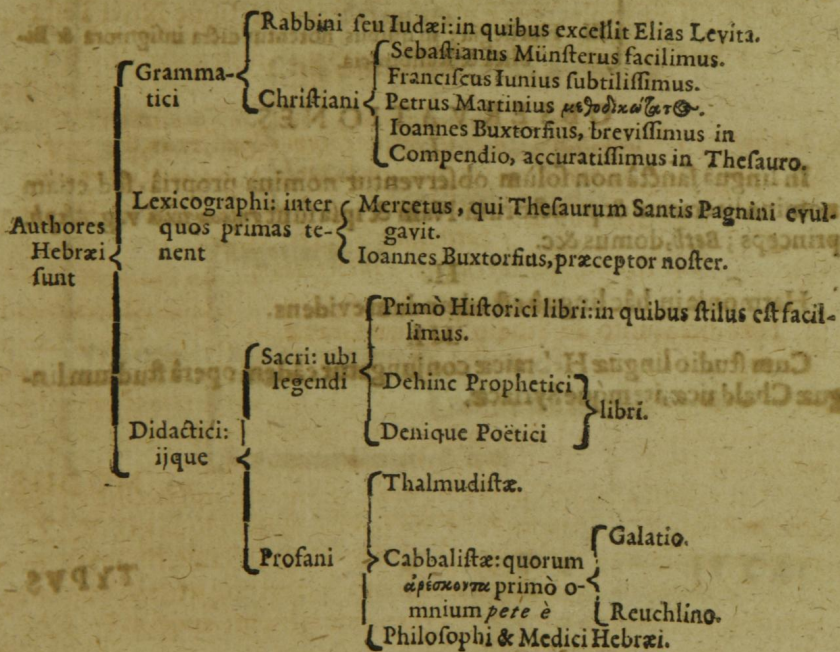 Rabbini ſeu Iudæi: in quibus excellit Elias Levita.
Gramma-
tici
Chriſtiani
Sebaſtianus Münſterus facilimus.
Franciſcus Iunius ſubtiliſſimus.
Petrus Martinius μεθοδικώτατος.
Ioannes Buxtorfius, breviſſimus in
Compendio, accuratiſſimus in Theſauro.
Authores
Hebræi
ſunt
Lexicographi: inter
quos primas te-
nent
Mercetus, qui Theſaurum Santis Pagnini evul-
gavit.
Ioannes Buxtorfius, præceptor noſter.
Didactici:
ijque
Sacri: ubi
legendi
Primò Hiſtorici libri: in quibus ſtilus eſt facil-
limus.
Dehinc Prophetici
Denique Poëtici
libri.
Profani
Thalmudiſtæ.
Cabbaliſtæ: quorum
ἀρέσκοντα primò o-
mnium pete è
Galatio.
Reuchlino.
Philoſophi & Medici Hebræi.